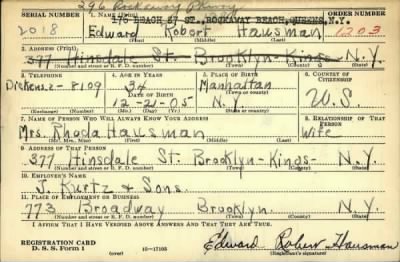 296 Rockaway Pkway
SERIAL NUMBER 1. NAME (Print) ORDER NUMBER
175 BEACH 87 ST., ROCKAWAY BEACH, QUEENS, N.Y.
2018 Edward Robert Hausman 1203
(First) (Middle) (Last)
2. ADDRESS (Print)
377 Hinsdale St. Brooklyn-Kings N.Y.
(Number and street or R. F. D. number) (Town) (County) (State)
3. TELEPHONE 4. AGE IN YEARS 5. PLACE OF BIRTH 6. COUNTRY OF CITIZENSHIP
34 Manhattan
Dickens. 2-8109 DATE OF BIRTH (Town or county) U.S.
12-21-05 N.Y.
(Exchange) (Number) (Mo.) (Day) (Yr.) (State or country)
7. NAME OF PERSON WHO WILL ALWAYS KNOW YOUR ADDRESS 8. RELATIONSHIP OF THAT PERSON
Mrs. Rhoda Hausman Wife
(Mr., Mrs., Miss) (First) (Middle) (Last)
9. ADDRESS OF THAT PERSON
377 Hinsdale St. Brooklyn-Kings- N.Y.
(Number and street or R. F. D. number) (Town) (County) (State)
10. EMPLOYER'S NAME
J. Kurtz & Sons.
11. PLACE OF EMPLOYMENT OR BUSINESS
773 Broadway Brooklyn. N.Y.
(Number and street or R. F. D. number) (Town) (County) (State)
I AFFIRM THAT I HAVE VERIFIED ABOVE ANSWERS AND THAT THEY ARE TRUE.
REGISTRATION CARD
D. S. S. Form 1 (over) 16-17105
Edward Robert Hausman
(Registrant's signature)